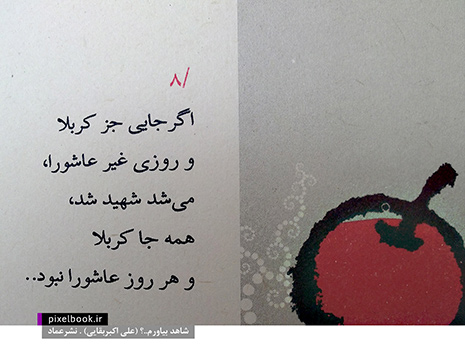 ۸/
اگر جایی جز کربلا
و روزی غیر عاشورا،
می‌شد شهید شد،
همه جا کربلا
و هر روز عاشورا نبود..
pixelbook.ir
شاهد بیاورم..؟ (علی اکبربقایی) . نشرعماد